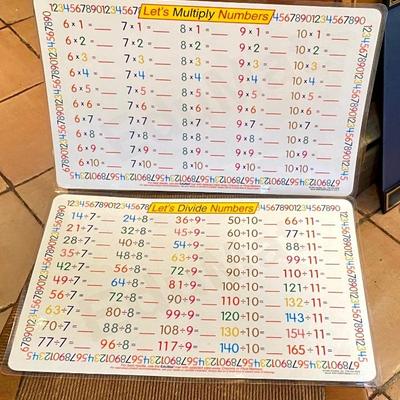 1234567890123456789012345678 Let's Multiply Numbers
6 x 1 = __ 7 x 1 = __ 8 x 1 = __ 9 x 1 = __ 10 x 1 = __
6 x 2 = __ 7 x 2 = __ 8 x 2 = __ 9 x 2 = __ 10 x 2 = __
6 x 3 = __ 7 x 3 = __ 8 x 3 = __ 9 x 3 = __ 10 x 3 = __
6 x 4 = __ 7 x 4 = __ 8 x 4 = __ 9 x 4 = __ 10 x 4 = __
6 x 5 = __ 7 x 5 = __ 8 x 5 = __ 9 x 5 = __ 10 x 5 = __
6 x 6 = __ 7 x 6 = __ 8 x 6 = __ 9 x 6 = __ 10 x 6 = __
6 x 7 = __ 7 x 7 = __ 8 x 7 = __ 9 x 7 = __ 10 x 7 = __
6 x 8 = __ 7 x 8 = __ 8 x 8 = __ 9 x 8 = __ 10 x 8 = __
6 x 9 = __ 7 x 9 = __ 8 x 9 = __ 9 x 9 = __ 10 x 9 = __
6 x 10 = __ 7 x 10 = __ 8 x 10 = __ 9 x 10 = __ 10 x 10 = __
Let's Divide Numbers
14÷7= __ 24÷8= __ 36÷9= __ 50÷10= __ 66÷11= __
21÷7= __ 32÷8= __ 45÷9= __ 60÷10= __ 77÷11= __
28÷7= __ 40÷8= __ 54÷9= __ 70÷10= __ 88÷11= __
35÷7= __ 48÷8= __ 63÷9= __ 80÷10= __ 99÷11= __
42÷7= __ 56÷8= __ 72÷9= __ 90÷10= __ 110÷11= __
49÷7= __ 64÷8= __ 81÷9= __ 100÷10= __ 121÷11= __
56÷7= __ 72÷8= __ 90÷9= __ 110÷10= __ 132÷11= __
63÷7= __ 80÷8= __ 99÷9= __ 120÷10= __ 143÷11= __
70÷7= __ 88÷8= __ 108÷9= __ 130÷10= __ 154÷11= __
77÷7= __ 96÷8= __ 117÷9= __ 140÷10= __ 165÷11= __